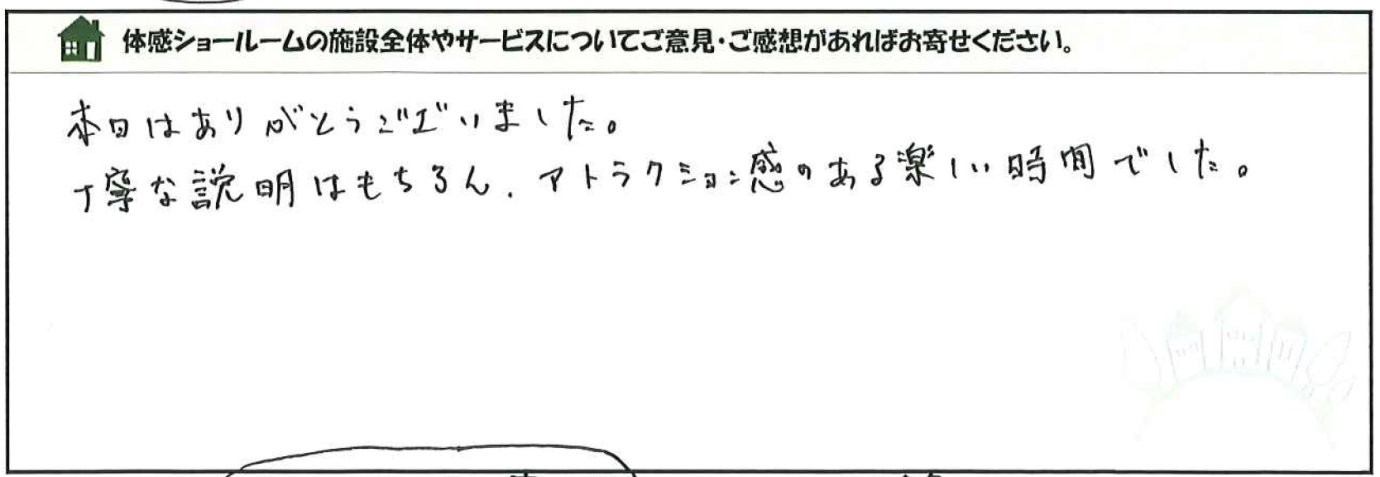 体感ショールームの施設全体やサービスについてご意見・ご感想があればお寄せください。
本日はありがとうございました。
丁寧な説明はもちろん、アトラクション感のある楽しい時間でした。